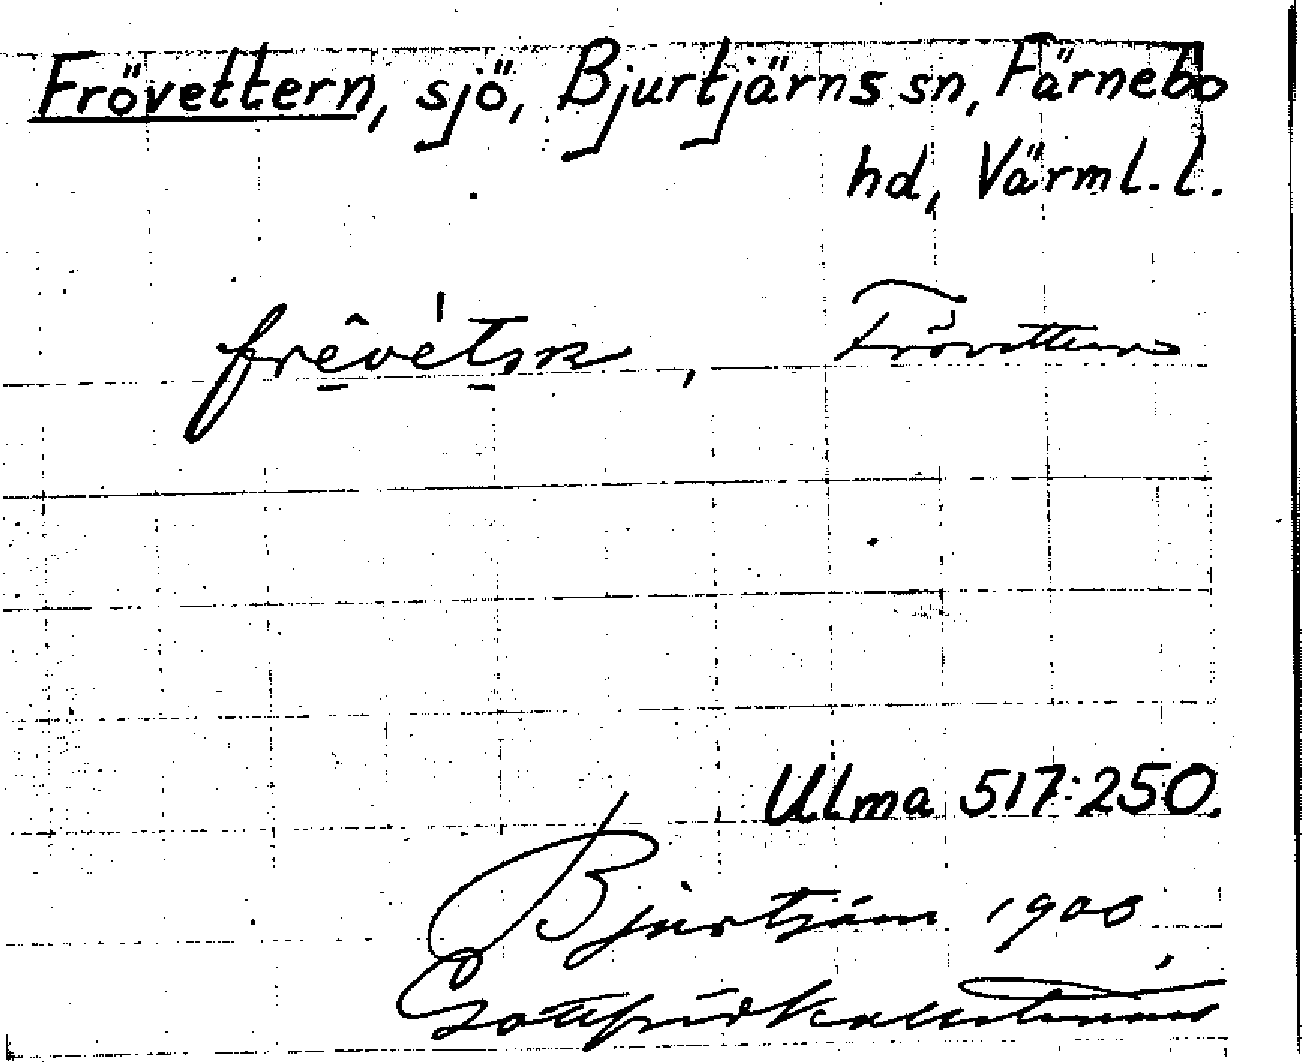 Frövettern, sjö, Bjurtjärns sn, Färnebo
hd, Värml. l.
Frövettern
Ulma 517:250.
Bjurtjärn 1908
Gottfrid Kallstenius